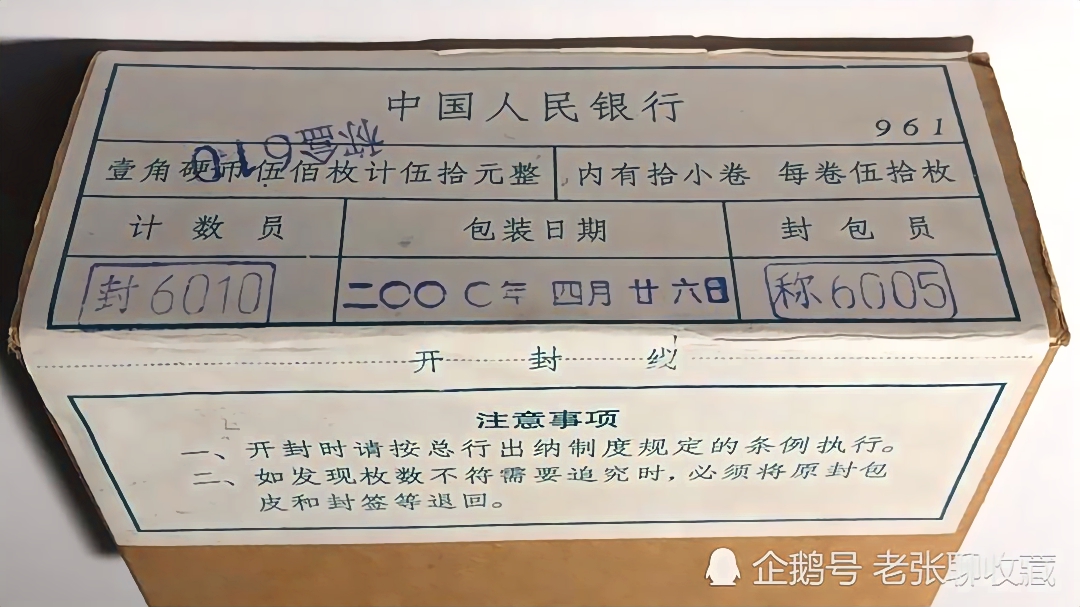 中国人民银行
961
壹角硬币伍佰枚计伍拾元整 内有拾小卷 每卷伍拾枚
计数员 包装日期 封包员
封6010 二〇〇〇年 四月廿六日 称6005
开封线
注意事项
一、开封时请按总行出纳制度规定的条例执行。
二、如发现枚数不符需要追究时,必须将原封包
皮和封签等退回。
企鹅号 老张聊收藏